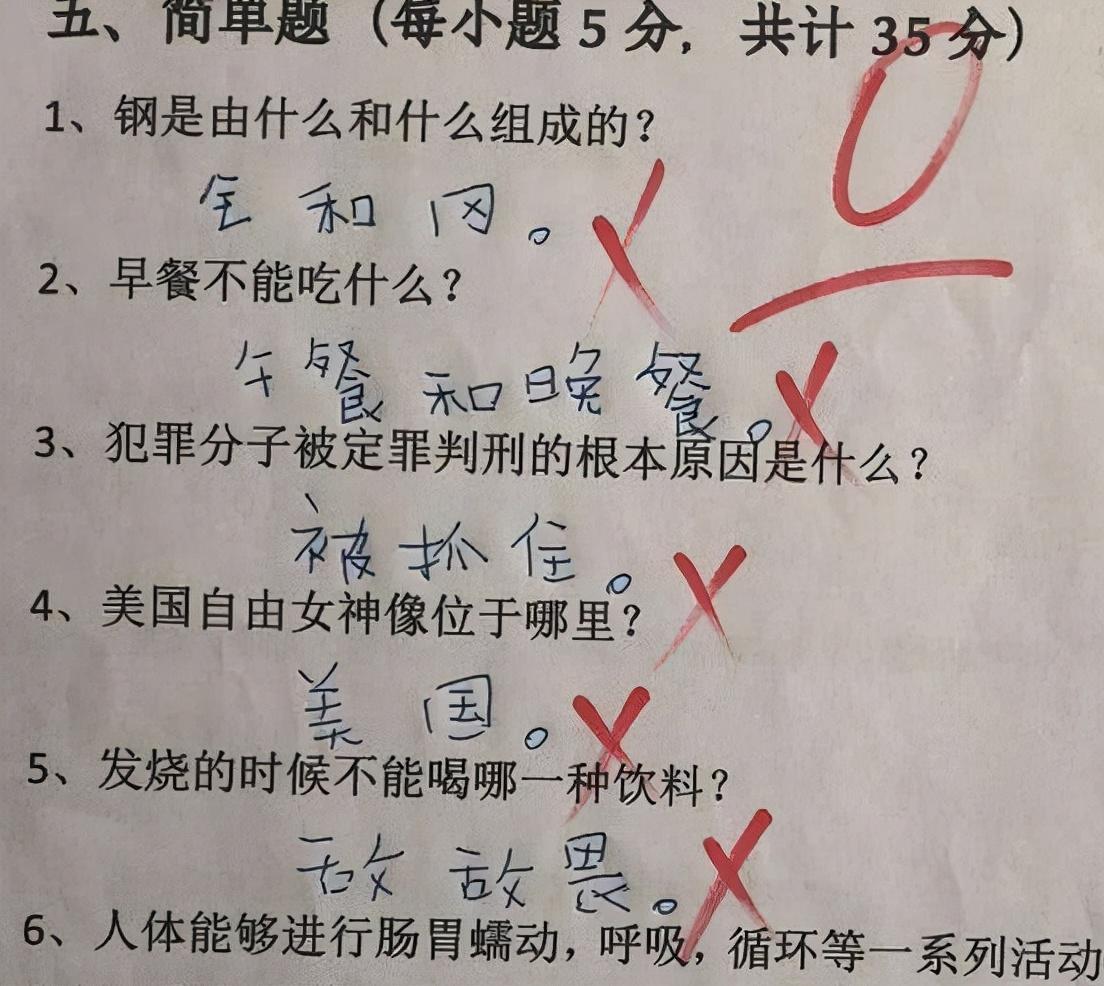 五、简单题（每小题 5 分，共计 35 分）
0
1、钢是由什么和什么组成的？
钅和冈。
2、早餐不能吃什么？
午餐和晚餐。
3、犯罪分子被定罪判刑的根本原因是什么？
被抓住。
4、美国自由女神像位于哪里？
美国。
5、发烧的时候不能喝哪一种饮料？
敌敌畏。
6、人体能够进行肠胃蠕动，呼吸，循环等一系列活动